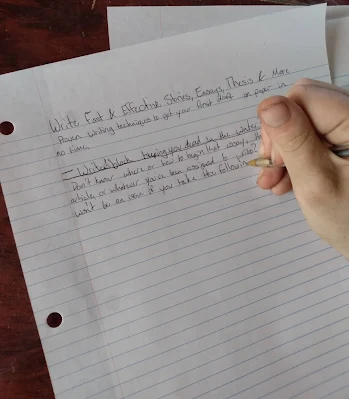 Write Fast & Effective Stories, Essays, Thesis & More
Proven writing techniques to get your first draft on paper in
no time.
- Writer's block having you dead in the water
Don't know where or how to begin that essay, the
article, or whatever you've been assigned to write?
won't be an issue if you take the following